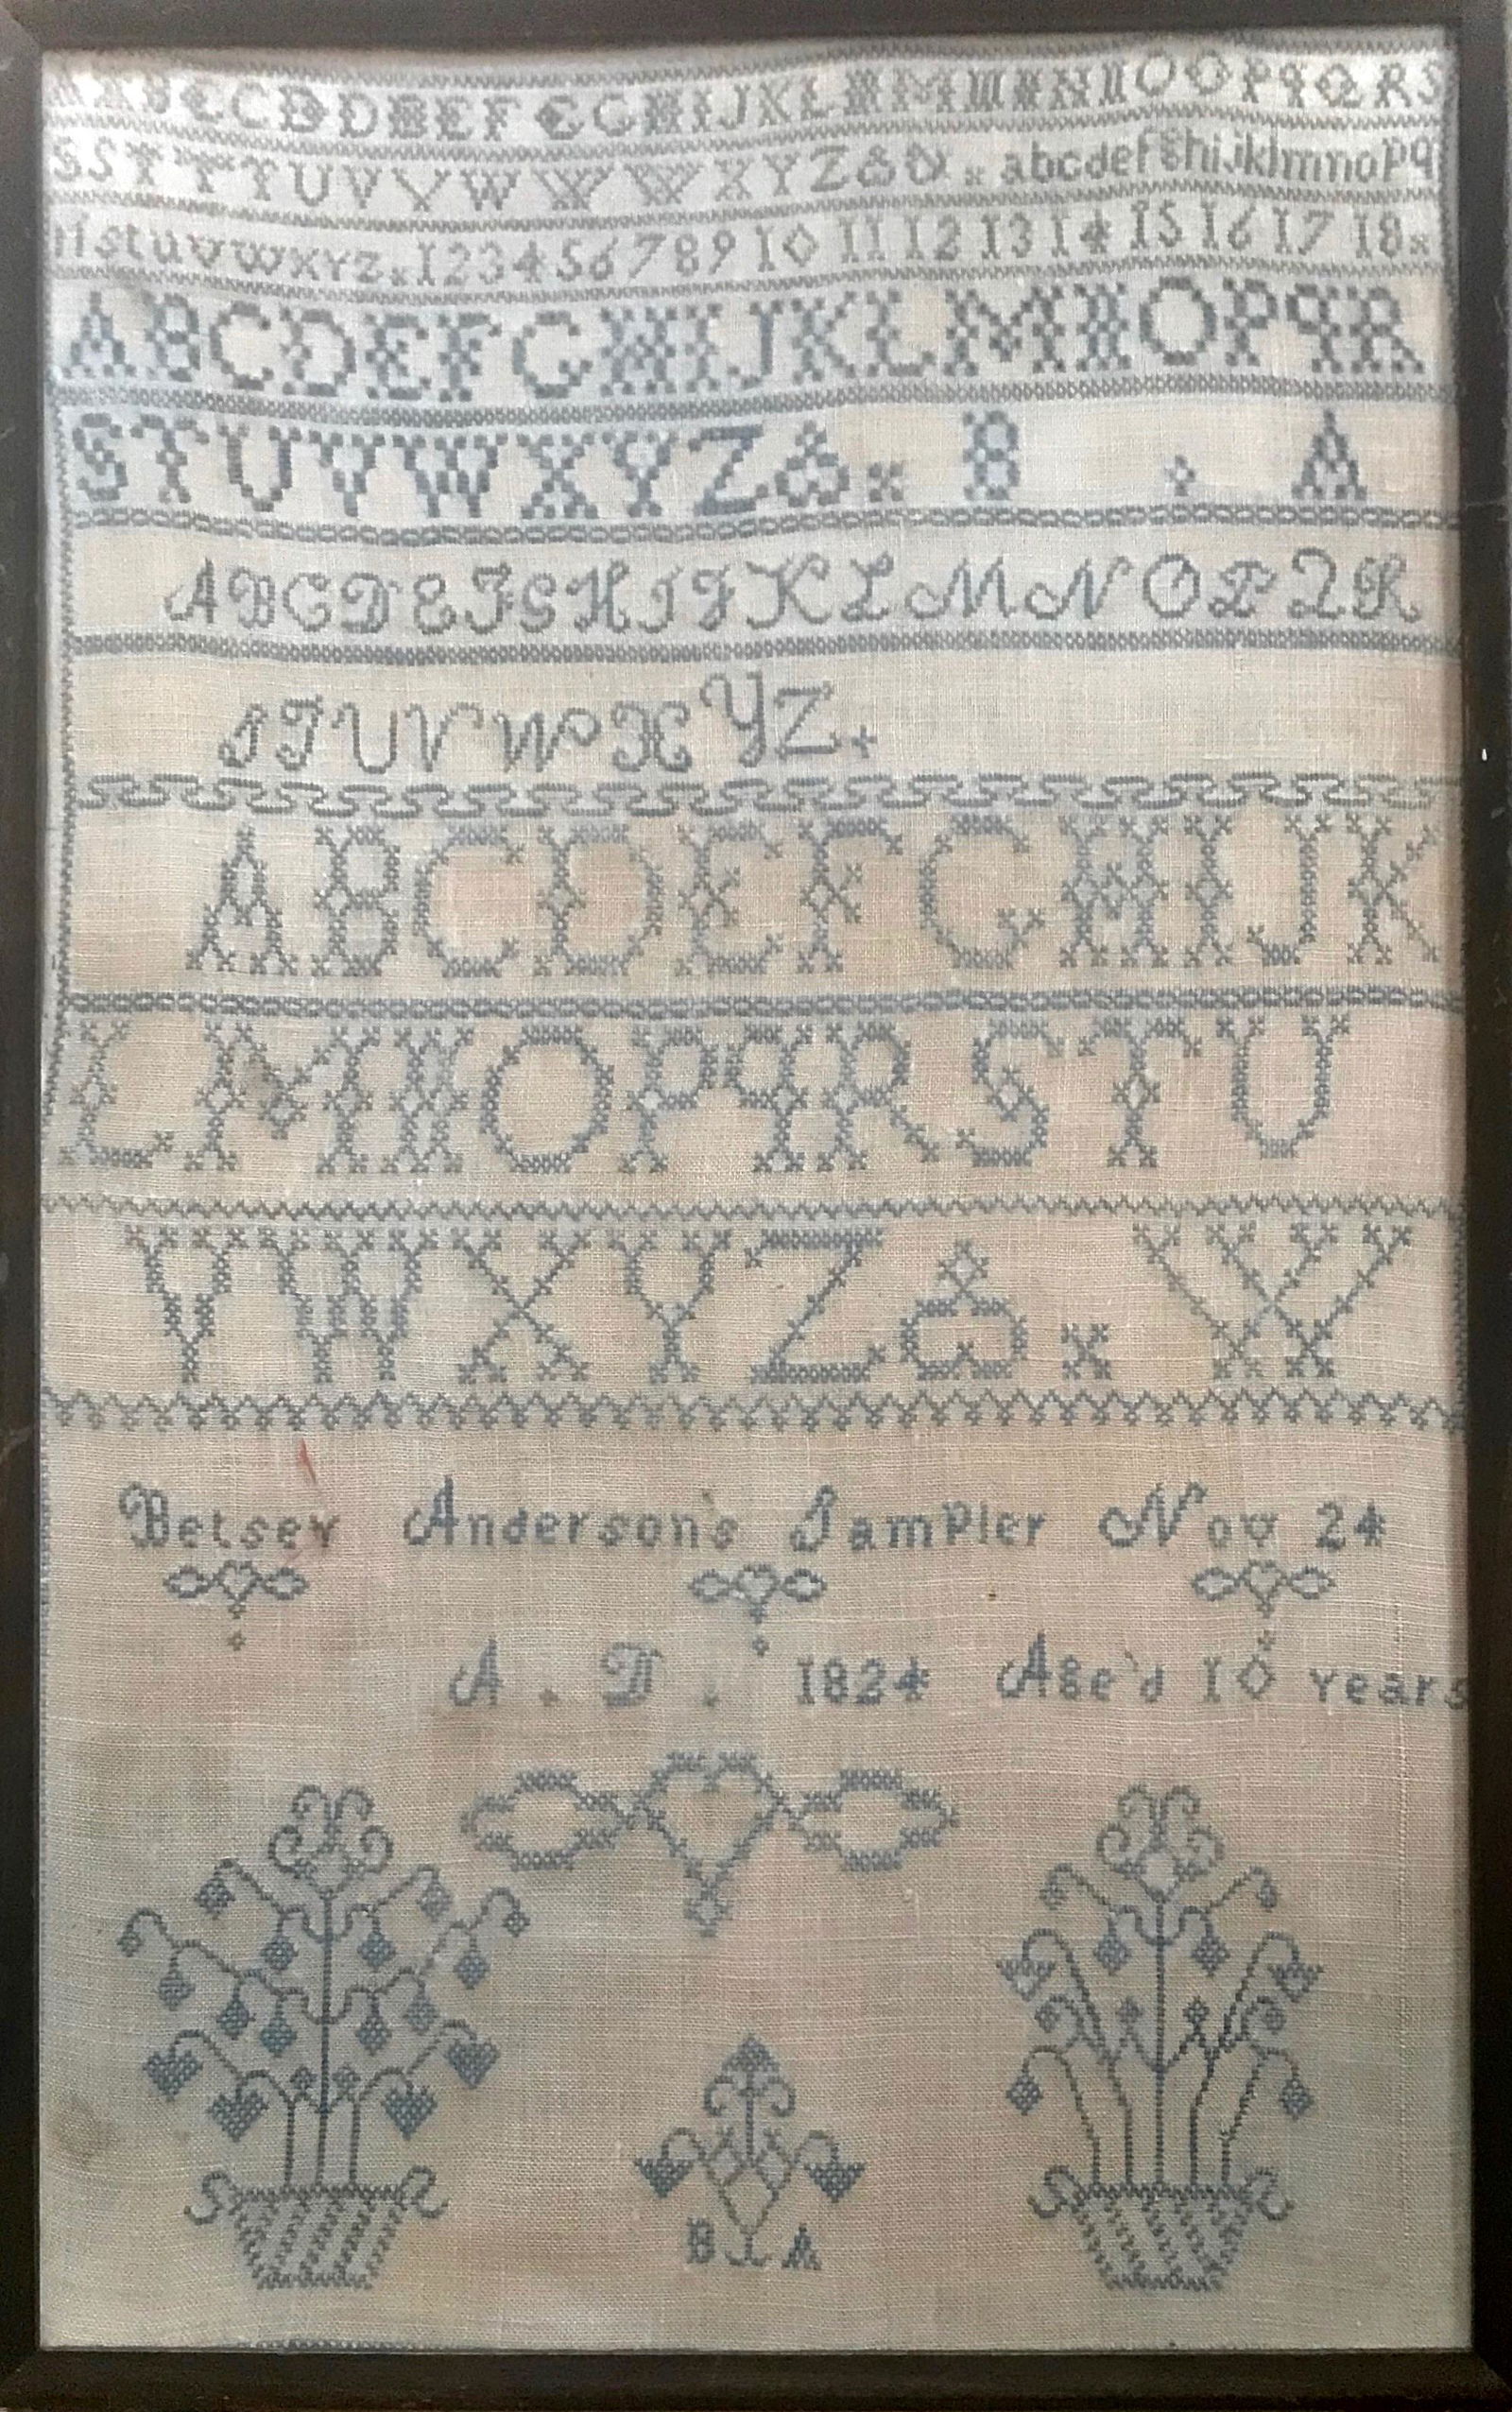 A A B C C D D D B E E F C G H I J K L M M M N N N O O P q Q R S
S S T T T U V V W W W X Y Z & & x a b c d e f g h i j k l m n o p q
r s t u v w x y z x 1 2 3 4 5 6 7 8 9 10 11 12 13 14 15 16 17 18 x
A B C D E F G H I J K L M N O P q R
S T U V W X Y Z & x B . A
A B C D E F G H I J K L M N O P Q R
S T U V W X Y Z +
A B C D E F G H I J K
L M N O P q R S T U
V W X Y Z & x W
Betsey Anderson's Sampler Nov 24
A . D . 1824 Age'd 10 years
B A